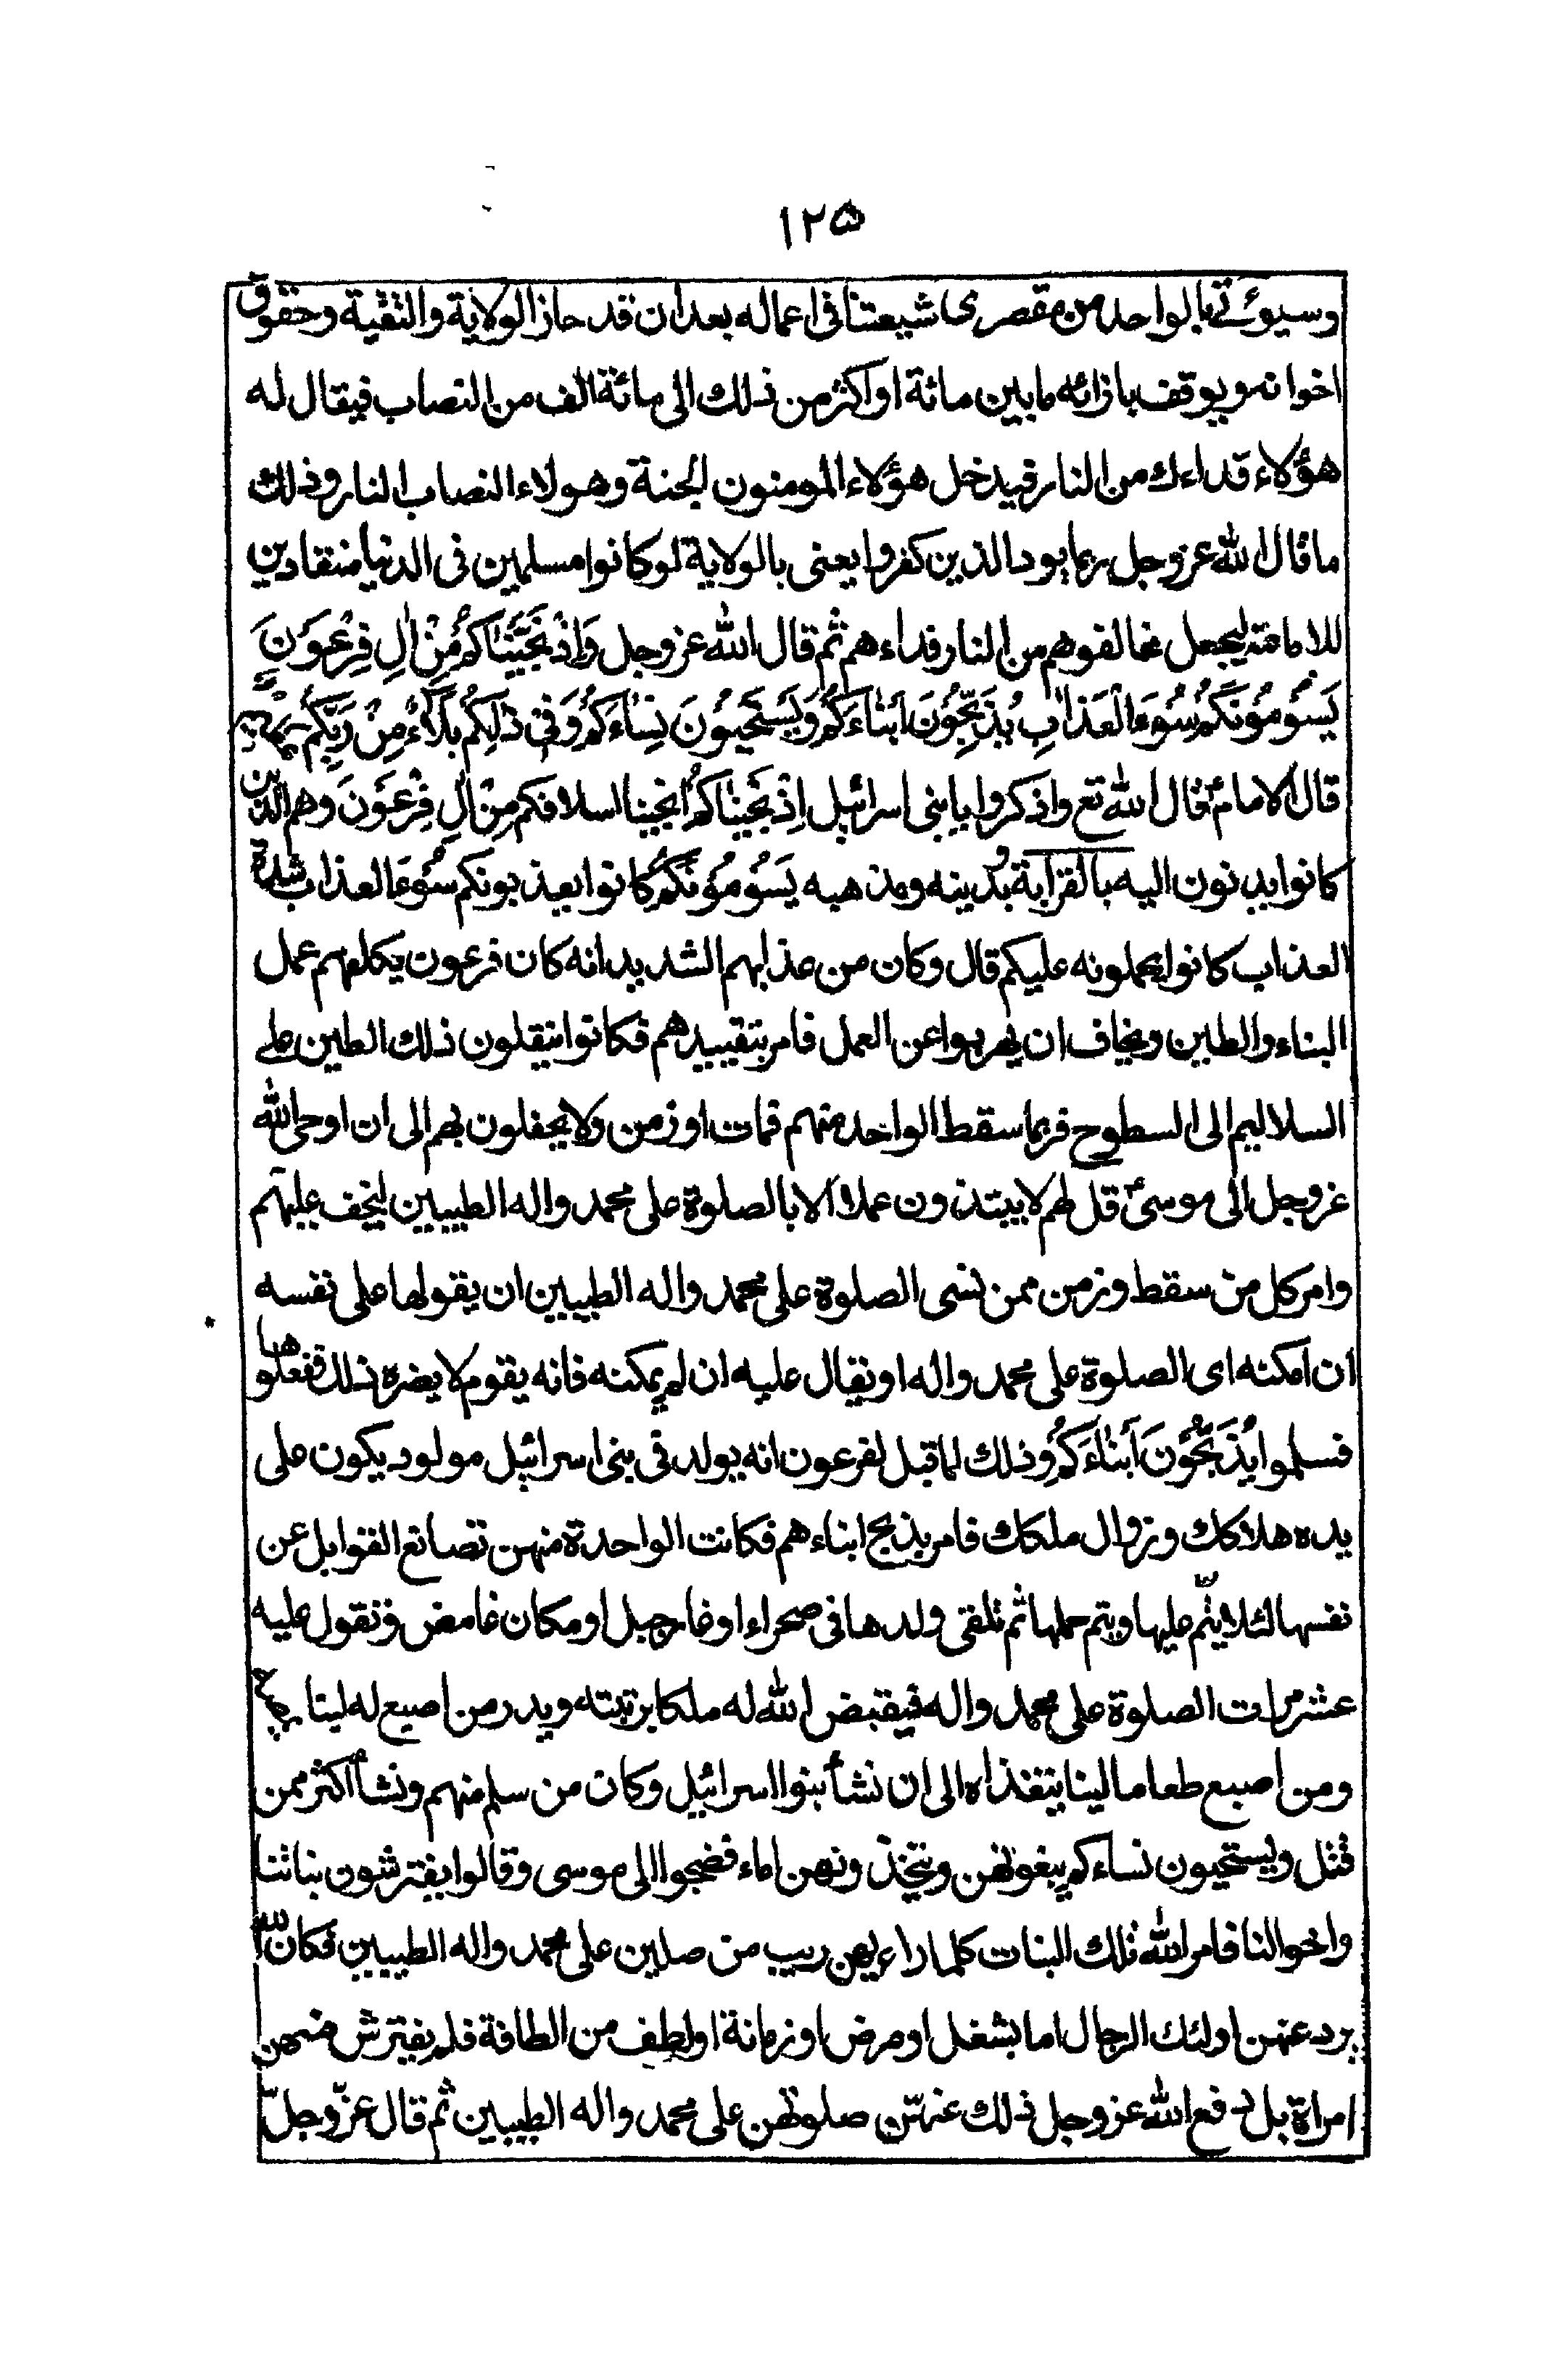 ١٢٥
وسيوئتي بالواحد من مقصرى شيعتنا فى اعماله بعد ان قد حاز الولاية والتقية وحقوق
اخوانه ويوقف بازائه مابين مائة او اكثر من ذلك الى مائة الف من النصاب فيقال له
هؤلاء فداءك من النار فيدخل هؤلاء المومنون الجنة وهولاء النصاب النار وذلك
ما قال الله عز وجل ربما يود الذين كفروا يعنى بالولاية لو كانوا مسلمين فى الدنيا منقادين
للامامة ليجعل مخالفوهم من النار فداءهم ثم قال الله عز وجل وَاِذْ نَجَّيْنَاكُمْ مِنْ اٰلِ فِرْعَوْنَ
يَسُوْمُوْنَكُمْ سُوْءَ الْعَذَابِ يُذَبِّحُوْنَ اَبْنَاءَكُمْ وَيَسْتَحْيُوْنَ نِسَاءَكُمْ وَفِى ذٰلِكُمْ بَلَاءٌ مِنْ رَبِّكُمْ عَظِيْمٌ
قال الامامؑ قال الله تع واذكروا يا بنى اسرائيل اِذْ نَجَّيْنَاكُمْ انجينا اسلافكم مِنْ اٰلِ فِرْعَوْنَ وهم الذين
كانوا يدنون اليه بالقرابة وبدينه ومذهبه يَسُوْمُوْنَكُمْ كانوا يعذبونكم سُوْءَ العذاب شدة
العذاب كانوا يحملونه عليكم قال وكان من عذابهم الشديد انه كان فرعون يكلفهم عمل
البناء والطين ويخاف ان يهربوا عن العمل فامر بتقييدهم فكانوا ينقلون ذلك الطين على
السلاليم الى السطوح فربما سقط الواحد منهم فمات او زمن ولا يحفلون بهم الى ان اوحى الله
عز وجل الى موسىؑ قل لهم لا يبتدؤن عملا الا بالصلوة على محمد واله الطيبين ليخف عليهم
وامر كل من سقط وزمن ممن نسى الصلوة على محمد واله الطيبين ان يقولها على نفسه
ان امكنه اى الصلوة على محمد واله او يقال عليه ان لم يمكنه فانه يقوم لا يضره ذلك ففعلوها
فسلموا يُذَبِّحُوْنَ اَبْنَاءَكُمْ وذلك لما قيل لفرعون انه يولد فى بنى اسرائيل مولود يكون على
يده هلاكك وزوال ملكك فامر بذبح ابناءهم فكانت الواحدة منهن تصانع القوابل عن
نفسها لئلا ينم عليها ويتم حملها ثم تلقى ولدها فى صحراء او غار جبل او مكان غامض وتقول عليه
عشر مرات الصلوة على محمد واله فيقبض الله له ملكا يربيته ويدر من اصبع له لبنا يمصه
ومن اصبع طعاما لينا يتغذاه الى ان نشأ بنوا اسرائيل وكان من سلم منهم ونشأ اكثر ممن
قتل ويستحيون نساءكم يبقونهن ويتخذونهن اماء فضجوا الى موسى وقالوا يفترشون بناتنا
واخوالنا فامر الله تلك البنات كلما راءيهن ريب من صلين على محمد واله الطيبين فكان الله
يرد عنهن اولئك الرجال اما بشغل او مرض او زمانة او لطف من الطافة فلم يفترش منهن
امراة بل دفع الله عز وجل ذلك عنهن بصلوتهن على محمد واله الطيبين ثم قال عزّ وجلّ